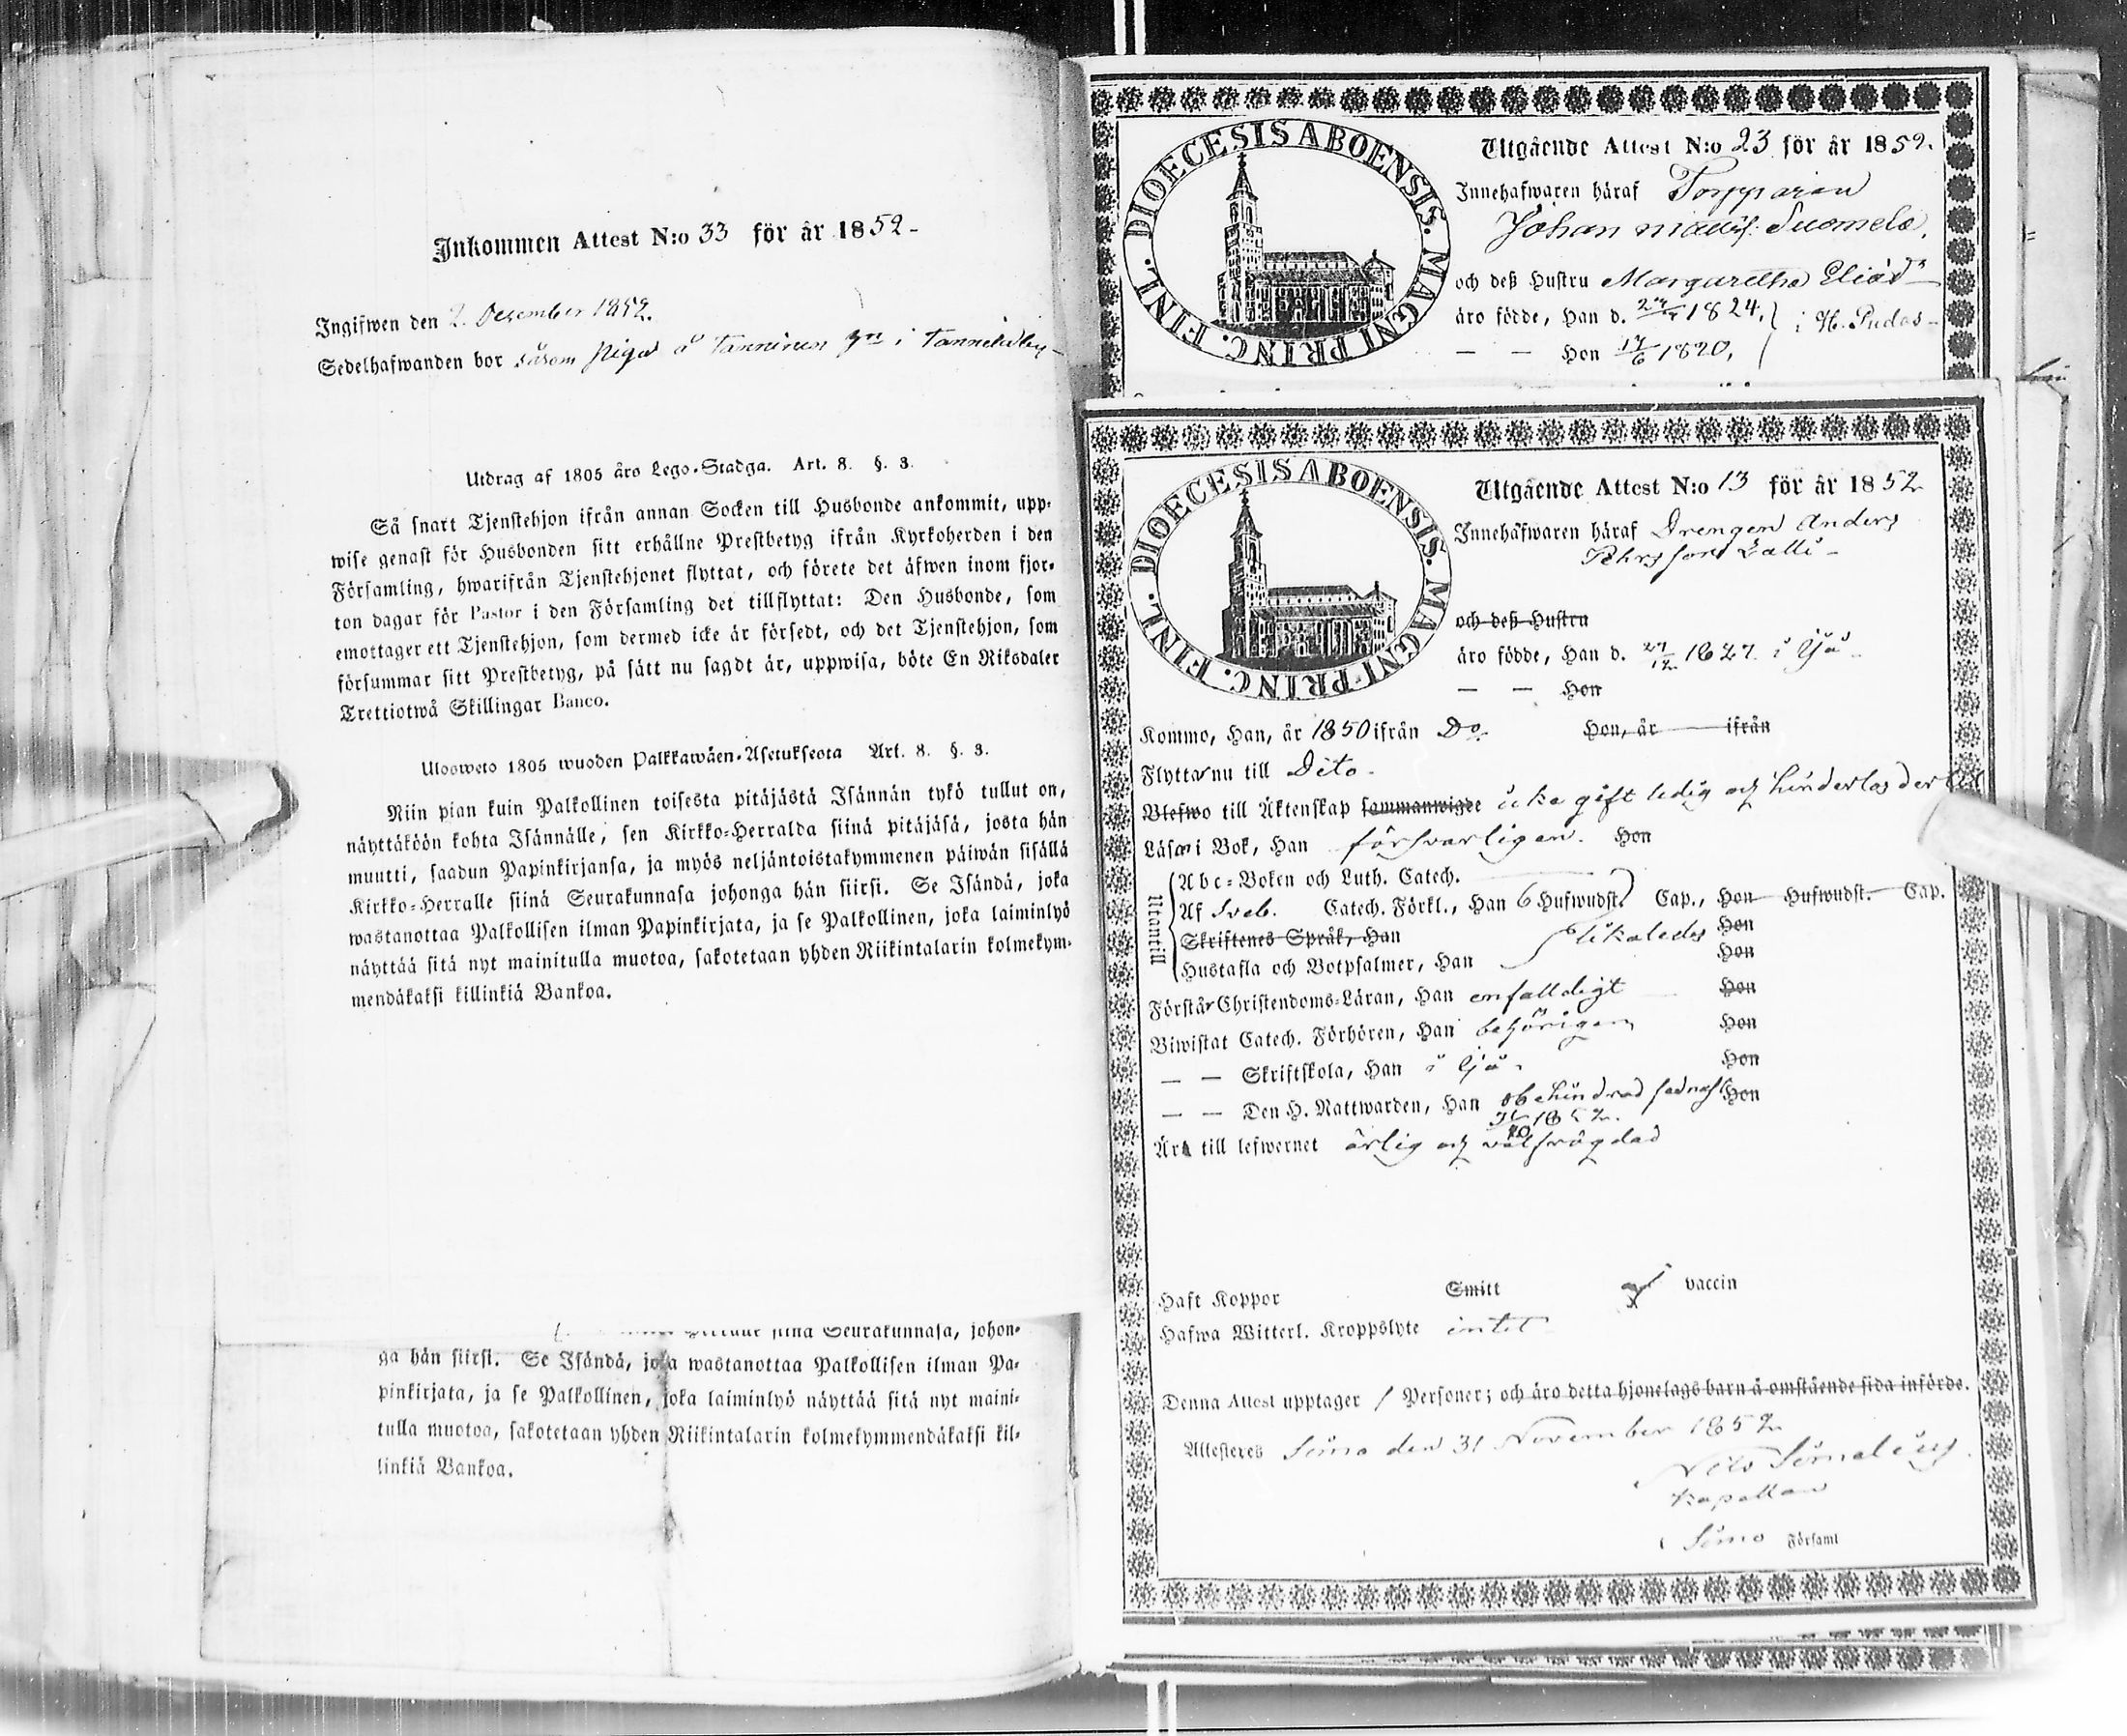 Inkommen Attest N:o 33 för år 1852-
Ingifwen den 2. December 1852.
Sedelhafwanden bor såsom piga å Tanninen i
Utdrag af 1805 års Lego-Stadga. Art. 8. §. 3.
Så snart Tjenstehjon ifrån annan Socken till Husbonde ankommit, upp-
wise genast för Husbonden sitt erhållne Prestbetyg ifrån Kyrkoherden i den
Församling, hwarifrån Tjenstehjonet flyttat, och förete det äfwen inom fjor-
ton dagar för Pastor i den Församling det tillflyttat: Den Husbonde, som
emottager ett Tjenstehjon, som dermed icke är försedt, och det Tjenstehjon, som
försummar sitt Prestbetyg, på sätt nu sagdt är, uppwisa, böte En Riksdaler
Trettiotwå Skillingar Banco.
Ulosweto 1805 wuoden Palkkawäen-Asetuksesta Art. 8. §. 3.
Niin pian kuin Palkollinen toisesta pitäjästä Isännän tykö tullut on,
näyttäköön kohta Isännälle, sen Kirkko-Herralda siinä pitäjäsä, josta hän
muutti, saadun Papinkirjansa, ja myös neljäntoistakymmenen päiwän sisällä
Kirkko-Herralle siinä Seurakunnasa johonga hän siirsi. Se Isändä, joka
wastanottaa Palkollisen ilman Papinkirjata, ja se Palkollinen, joka laiminlyö
näyttää sitä nyt mainitulla muotoa, sakotetaan yhden Riikintalarin kolmekym-
mendäkaksi killinkiä Bankoa.
siinä Seurakunnasa, johon-
ga hän siirsi. Se Isändä, joka wastanottaa Palkollisen ilman Pa-
pinkirjata, ja se Palkollinen, joka laiminlyö näyttää sitä nyt maini-
tulla muotoa, sakotetaan yhden Riikintalarin kolmekymmendäkaksi kil-
linkiä Bankoa.
DIOECESIS ABOENSIS. MAGNI PRINC. FINL.
Utgående Attest N:o 23 för år 1852.
Innehafwaren häraf Torpparen
Johan Matts: Suomela,
och deß Hustru Margaretha Eliäd:
äro födde, Han d. 1824. i H. Pudas-
— — Hon 17/6 1820.
DIOECESIS ABOENSIS. MAGNI PRINC. FINL.
Utgående Attest N:o 13 för år 1852
Innehafwaren häraf Drengen Anders
Pehrsson Lalli-
och deß Hustru
äro födde, Han d. 27/12 1827. i Ijå-
— — Hon
Kommo, Han, år 1850 ifrån Do. Hon, år ifrån
Flytta nu till Dito.
Blefwo till Äktenskap sammanwigde icke gift ledig och hinderlös
Läsa i Bok, Han försvarligen. Hon
Utantill
Abc-Boken och Luth. Catech.
Af Sveb. Catech. Förkl., Han 6 Hufwudst. Cap., Hon Hufwudst. Cap.
Skriftenes Språk, Han likaledes Hon
Hustafla och Botpsalmer, Han Hon
Förstår Christendoms-Läran, Han enfalldigt Hon
Biwistat Catech. Förhören, Han behörigen Hon
— — Skriftskola, Han i Ijå. Hon
— — Den H. Nattwarden, Han obehindrad sednast Hon
1852.
Är till lefwernet ärlig och välfrägdad
Haft Koppor Smitt vaccin
Hafwa Witterl. Kroppslyte intet
Denna Attest upptager 1 Personer; och äro detta hjonelags barn å omstående sida införde.
Attesteres Simo den 31 November 1852
Nils Simelius
Kapellan
i Simo Församl